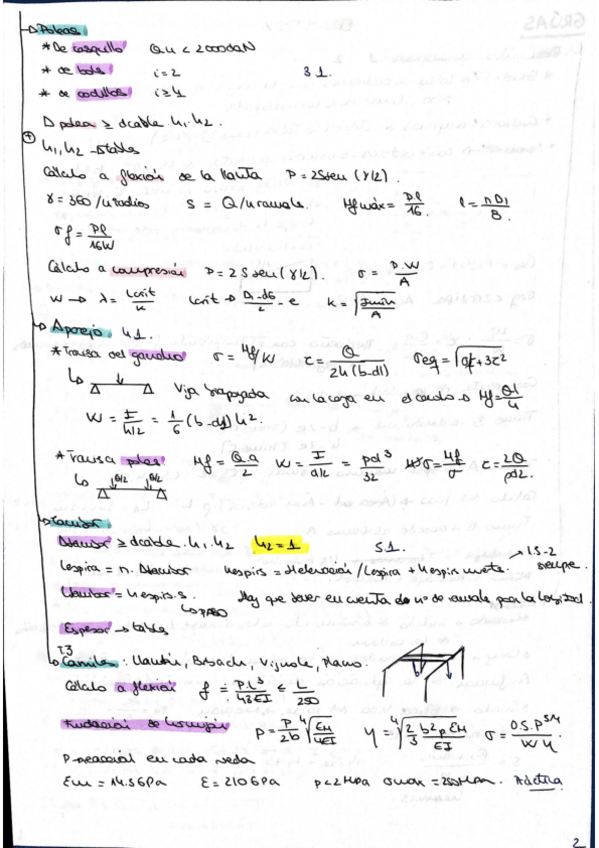 → Poleas
* De casquillo   Qu < 2000daN
* de bolas   i=2   3 1.
* de rodillos   i≥4
D polea ≥ dcable. h1.h2.
h1,h2 → tablas
Cálculo a flexión de la llanta   P = 2S sen (γ/2).
γ = 360/nradios   S = Q/nramales.   Mfmáx = Pl/16.   l = πD1/8.
σf = Pl/16W
Cálculo a compresión   P = 2 S sen (γ/2).   σ = P.W/A
W → λ = Lcrit/k   Lcrit → D1-d6/2 - e   k = √Jmín/A
→ Aparejo 4 1.
* Traviesa del gancho   σ = Mf/W   τ = Q/2h(b-d1)   σeq = √σf²+3τ²
Viga biapoyada con la carga en el centro → Mf = Ql/4
W = I/h/2 = 1/6 (b-d1) h².
* Traviesa poleas   Mf = Q.a/2   W = I/d/2 = πd³/32   σ = Mf/σ   τ = 2Q/πd².
Q/2   Q/2
→ Tambor
Dtambor ≥ dcable. h1.h2   h2 = 1   5.1.
Lespira = π. Dtambor   nespiras = Helevación/Lespira + nespiras muerta.   → 1.5-2 siempre.
Ltambor = nespiras.s   Hay que tener en cuenta el nº de ramales para la longitud.
→ paso
Espesor → tablas
T.3
→ Carriles: Llantón, Burbach, Vignole, Plano.
Cálculo a flexión   f = PL³/48EI ≤ L/250
Fundación de hormigón   p = P/2b ⁴√EH/4EI   y = ⁴√2/3 b²p EH/EI   σ = 0.5.P^5/4/W y.
P → reacción en cada rueda
EH = 14.5GPa   E = 210GPa   p < 2MPa   σmax = 250MPa.
2